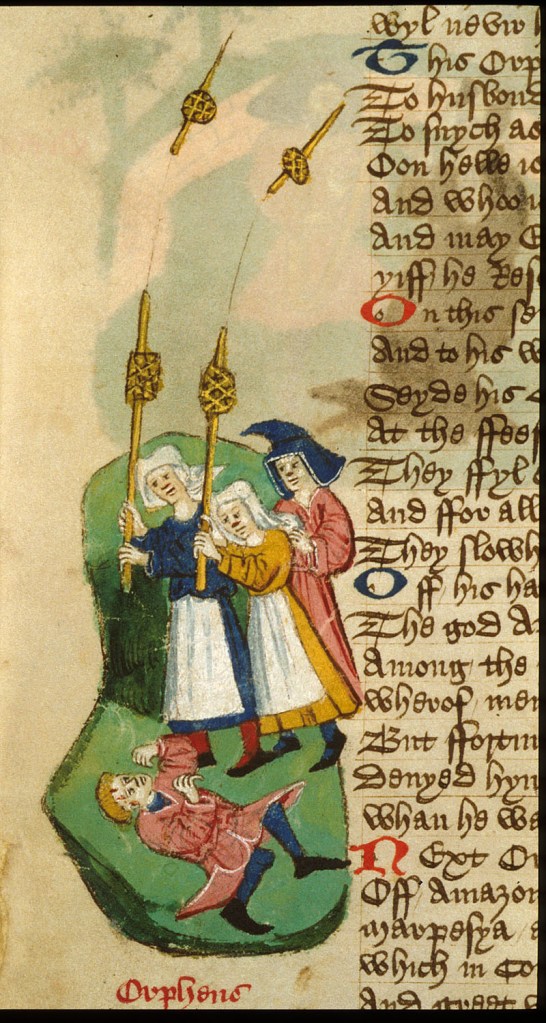 wyl nevir
This Orp
To husbond
To swych ac
Oon helle
And whoo
And may
yiff he Res
On this se
And to his w
Seyde his
At the ffees
They ffyl
And ffor all
They slowh
Off his ha
The god A
Among the
wherof men
But ffortun
denyed hym
whan he wa
NExt Or
Off Amazon
Marpesya
which in Co
And greet w
Orpheus